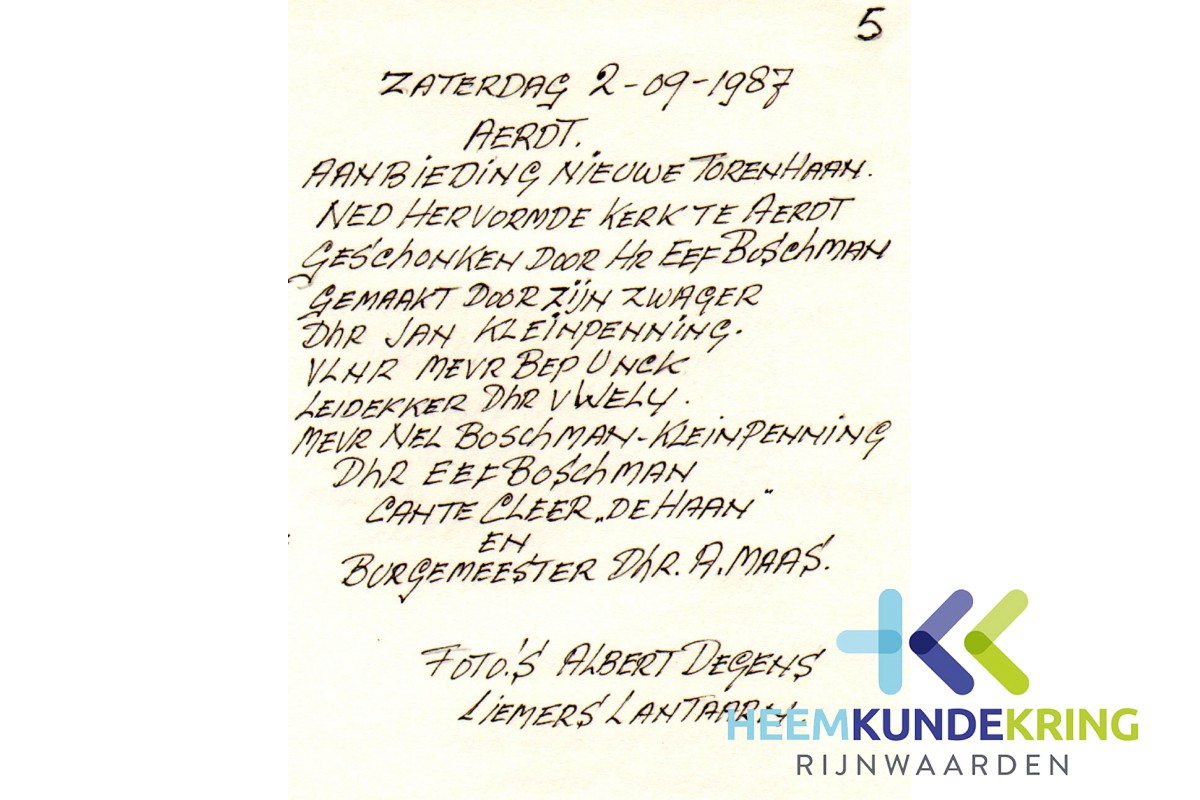 5
ZATERDAG 2-09-1987
AERDT.
AANBIEDING NIEUWE TORENHAAN.
NED HERVORMDE KERK TE AERDT
GESCHONKEN DOOR HR EEF BOSCHMAN
GEMAAKT DOOR ZIJN ZWAGER
DHR JAN KLEINPENNING.
VLNR MEVR BEP UNCK
LEIDEKKER DHR V WELY.
MEVR NEL BOSCHMAN-KLEINPENNING
DHR EEF BOSCHMAN
CANTE CLEER „DE HAAN"
EN
BURGEMEESTER DHR. A. MAAS.
FOTO'S ALBERT DEGENS
LIEMERS LANTAARN.
HEEMKUNDEKRING
RIJNWAARDEN